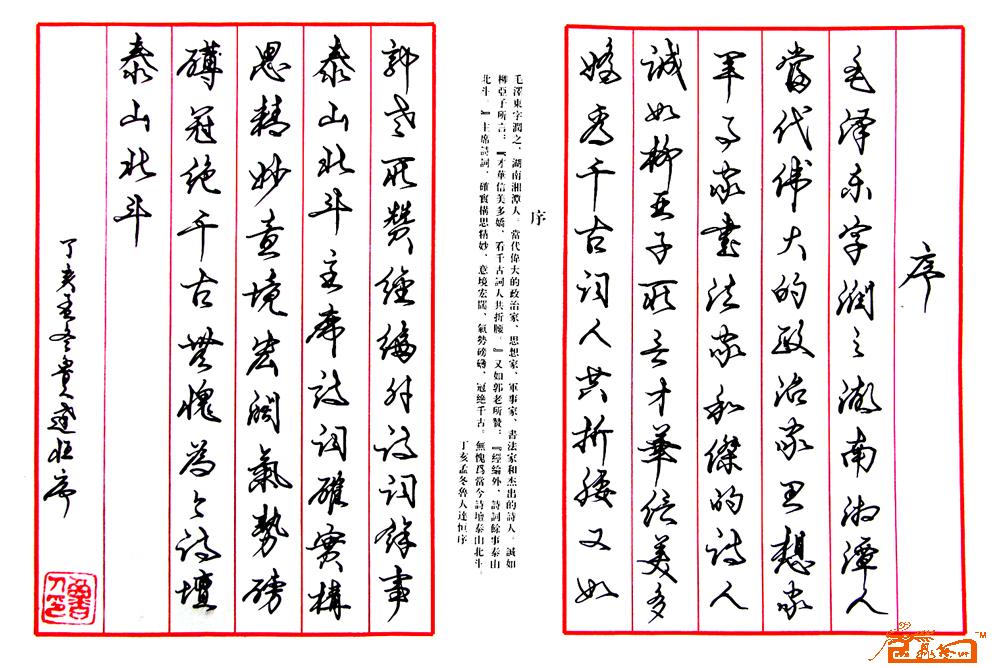 序
毛泽东字润之湖南湘潭人
當代伟大的政治家思想家
军事家書法家和傑的诗人
诚如柳亚子所言才華信美多
娇看千古词人共折腰又如
序
毛澤東字潤之、湖南湘潭人。當代偉大的政治家、思想家、軍事家、書法家和杰出的詩人。誠如
柳亞子所言：『才華信美多嬌，看千古詞人共折腰。』又如郭老所贊：『經綸外，詩詞餘事泰山
北斗。』主席詩詞，確實構思精妙、意境宏闊、氣勢磅礴、冠絶千古。無愧爲當今詩壇泰山北斗。
丁亥孟冬魯人達恒序
郭老所赞经纶外诗词馀事
泰山北斗主席诗词確實構
思精妙意境宏阔氣勢磅
礴冠绝千古無愧為今诗壇
泰山北斗
丁亥孟冬達恒序